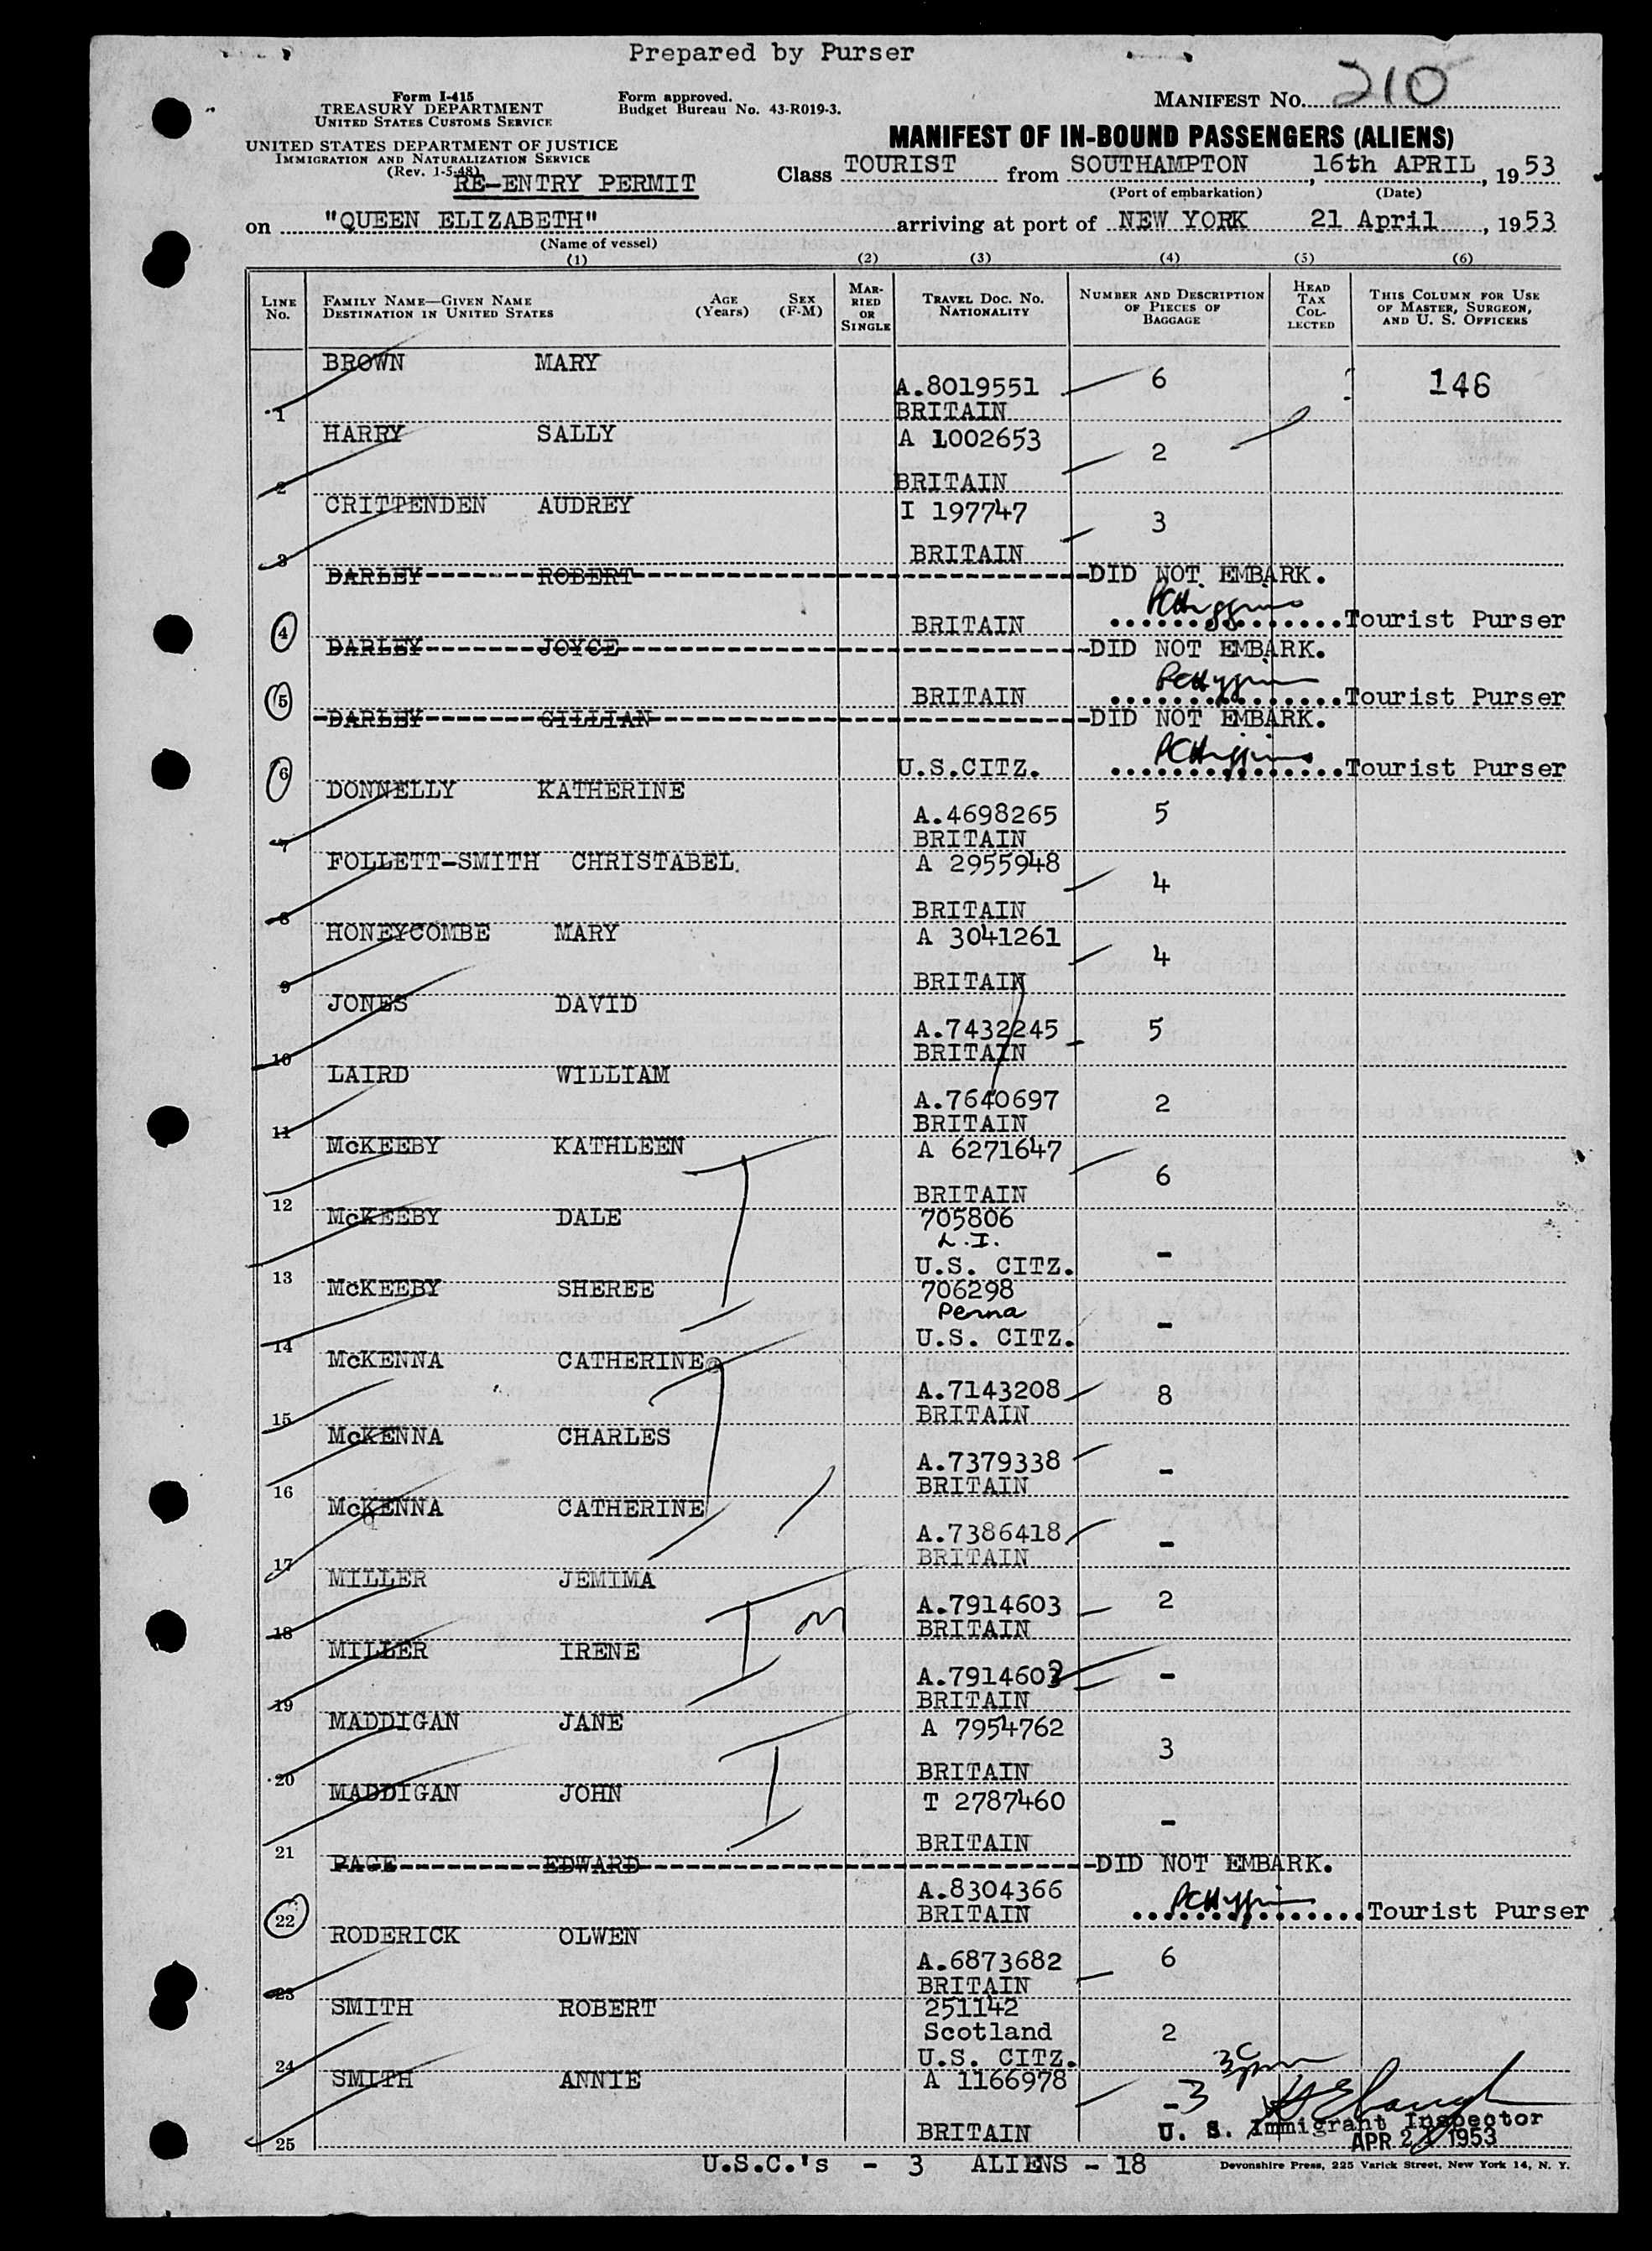 Prepared by Purser
Form I-415
TREASURY DEPARTMENT
UNITED STATES CUSTOMS SERVICE
UNITED STATES DEPARTMENT OF JUSTICE
IMMIGRATION AND NATURALIZATION SERVICE
(Rev. 1-5-48)
RE-ENTRY PERMIT
Form approved.
Budget Bureau No. 43-R019-3.
MANIFEST NO. 210
MANIFEST OF IN-BOUND PASSENGERS (ALIENS)
Class TOURIST from SOUTHAMPTON, 16th APRIL, 1953
(Port of embarkation) (Date)
on "QUEEN ELIZABETH" arriving at port of NEW YORK 21 April, 1953
(Name of vessel)
(1) (2) (3) (4) (5) (6)
LINE NO. FAMILY NAME—GIVEN NAME DESTINATION IN UNITED STATES AGE (Years) SEX (F-M) MARRIED OR SINGLE TRAVEL DOC. NO. NATIONALITY NUMBER AND DESCRIPTION OF PIECES OF BAGGAGE HEAD TAX COLLECTED THIS COLUMN FOR USE OF MASTER, SURGEON, AND U. S. OFFICERS
1 BROWN MARY A.8019551 BRITAIN 6 146
2 HARRY SALLY A 1002653 BRITAIN 2
3 CRITTENDEN AUDREY I 197747 BRITAIN 3
4 DARLEY ROBERT BRITAIN DID NOT EMBARK. PCHiggins Tourist Purser
5 DARLEY JOYCE BRITAIN DID NOT EMBARK. PCHiggins Tourist Purser
6 DARLEY GILLIAN U.S.CITZ. DID NOT EMBARK. PCHiggins Tourist Purser
7 DONNELLY KATHERINE A.4698265 BRITAIN 5
8 FOLLETT-SMITH CHRISTABEL. A 2955948 BRITAIN 4
9 HONEYCOMBE MARY A 3041261 BRITAIN 4
10 JONES DAVID A.7432245 BRITAIN 5
11 LAIRD WILLIAM A.7640697 BRITAIN 2
12 McKEEBY KATHLEEN A 6271647 BRITAIN 6
13 McKEEBY DALE 705806 L.I. U.S. CITZ. -
14 McKEEBY SHEREE 706298 Penna U.S. CITZ. -
15 McKENNA CATHERINE A.7143208 BRITAIN 8
16 McKENNA CHARLES A.7379338 BRITAIN -
17 McKENNA CATHERINE A.7386418 BRITAIN -
18 MILLER JEMIMA M A.7914603 BRITAIN 2
19 MILLER IRENE A.7914602 BRITAIN -
20 MADDIGAN JANE A 7954762 BRITAIN 3
21 MADDIGAN JOHN T 2787460 BRITAIN -
22 PAGE EDWARD A.8304366 BRITAIN DID NOT EMBARK. PCHiggins Tourist Purser
23 RODERICK OLWEN A.6873682 BRITAIN 6
24 SMITH ROBERT 251142 Scotland U.S. CITZ. 2
25 SMITH ANNIE A 1166978 BRITAIN -3
U. S. Immigrant Inspector
APR 21 1953
U.S.C.'s - 3 ALIENS - 18
Devonshire Press, 225 Varick Street, New York 14, N. Y.